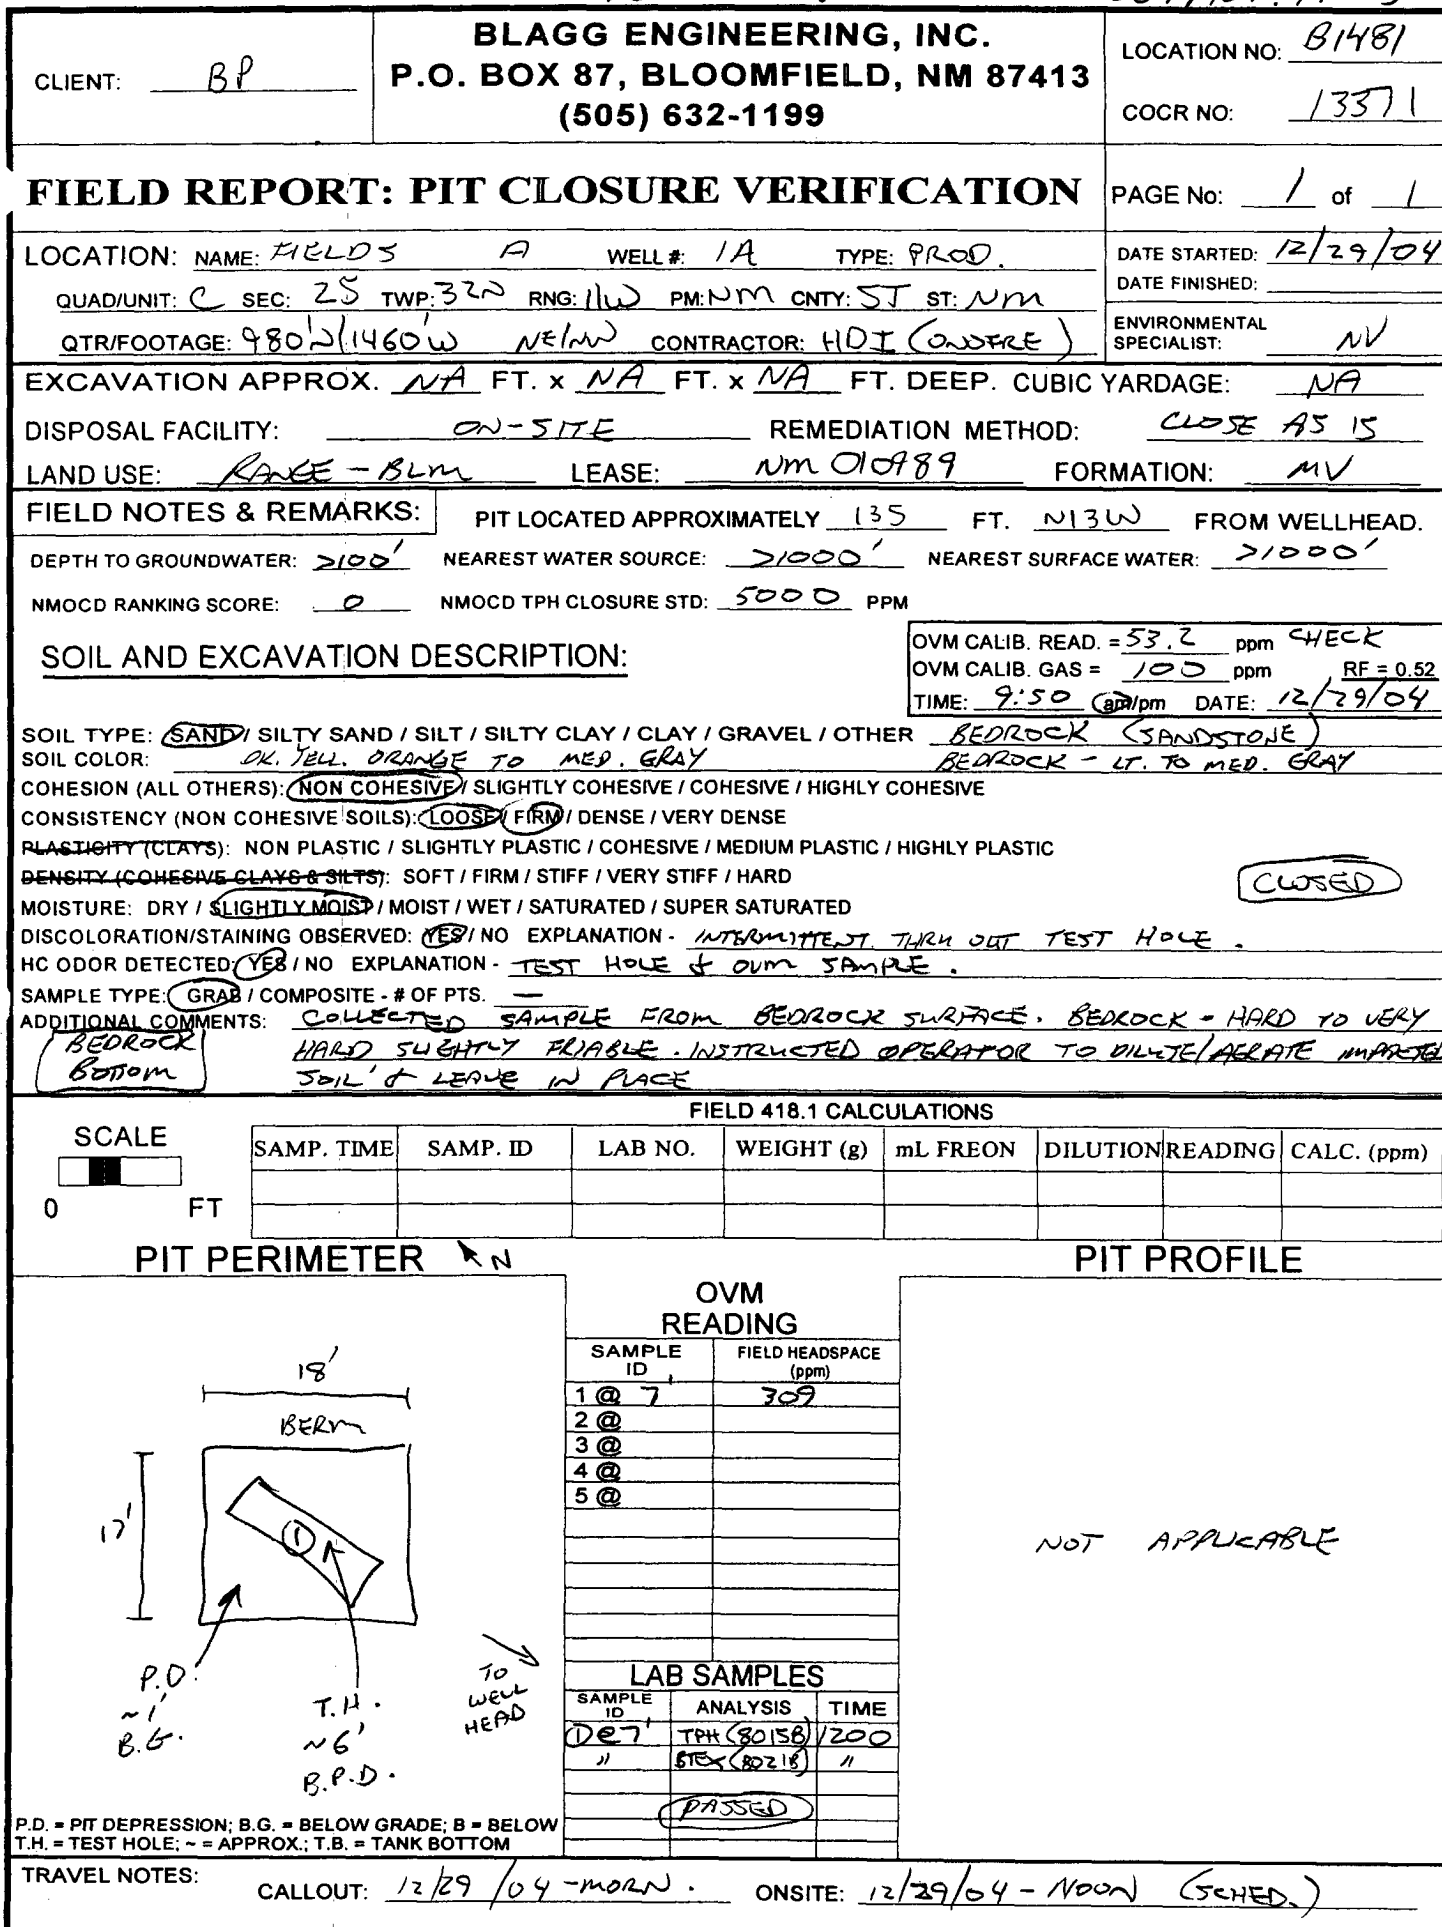 CLIENT: BP
BLAGG ENGINEERING, INC.
P.O. BOX 87, BLOOMFIELD, NM 87413
(505) 632-1199
LOCATION NO: B1481
COCR NO: 13371
FIELD REPORT: PIT CLOSURE VERIFICATION
PAGE No: 1 of 1
LOCATION: NAME: FIELDS A WELL #: 1A TYPE: PROD.
QUAD/UNIT: C SEC: 25 TWP: 32N RNG: 11W PM: NM CNTY: SJ ST: NM
QTR/FOOTAGE: 980'N/1460'W NE/NW CONTRACTOR: HDI (ONSFRE)
DATE STARTED: 12/29/04
DATE FINISHED:
ENVIRONMENTAL
SPECIALIST: NV
EXCAVATION APPROX. NA FT. x NA FT. x NA FT. DEEP. CUBIC YARDAGE: NA
DISPOSAL FACILITY: ON-SITE REMEDIATION METHOD: CLOSE AS IS
LAND USE: RANGE - BLM LEASE: NM 010989 FORMATION: MV
FIELD NOTES & REMARKS: PIT LOCATED APPROXIMATELY 135 FT. N13W FROM WELLHEAD.
DEPTH TO GROUNDWATER: >100' NEAREST WATER SOURCE: >1000' NEAREST SURFACE WATER: >1000'
NMOCD RANKING SCORE: 0 NMOCD TPH CLOSURE STD: 5000 PPM
SOIL AND EXCAVATION DESCRIPTION:
OVM CALIB. READ. = 53.2 ppm CHECK
OVM CALIB. GAS = 100 ppm RF = 0.52
TIME: 9:50 am/pm DATE: 12/29/04
SOIL TYPE: SAND / SILTY SAND / SILT / SILTY CLAY / CLAY / GRAVEL / OTHER BEDROCK (SANDSTONE)
SOIL COLOR: DK. YELL. ORANGE TO MED. GRAY BEDROCK - LT. TO MED. GRAY
COHESION (ALL OTHERS): NON COHESIVE / SLIGHTLY COHESIVE / COHESIVE / HIGHLY COHESIVE
CONSISTENCY (NON COHESIVE SOILS): LOOSE / FIRM / DENSE / VERY DENSE
PLASTICITY (CLAYS): NON PLASTIC / SLIGHTLY PLASTIC / COHESIVE / MEDIUM PLASTIC / HIGHLY PLASTIC
DENSITY (COHESIVE CLAYS & SILTS): SOFT / FIRM / STIFF / VERY STIFF / HARD
CLOSED
MOISTURE: DRY / SLIGHTLY MOIST / MOIST / WET / SATURATED / SUPER SATURATED
DISCOLORATION/STAINING OBSERVED: YES / NO EXPLANATION - INTERMITTENT THRU OUT TEST HOLE.
HC ODOR DETECTED: YES / NO EXPLANATION - TEST HOLE & OVM SAMPLE.
SAMPLE TYPE: GRAB / COMPOSITE - # OF PTS. —
ADDITIONAL COMMENTS: COLLECTED SAMPLE FROM BEDROCK SURFACE. BEDROCK - HARD TO VERY
HARD SLIGHTLY FRIABLE. INSTRUCTED OPERATOR TO DILUTE/AERATE IMPACTED
SOIL & LEAVE IN PLACE
BEDROCK
BOTTOM
FIELD 418.1 CALCULATIONS
SCALE
0 FT
SAMP. TIME SAMP. ID LAB NO. WEIGHT (g) mL FREON DILUTION READING CALC. (ppm)
PIT PERIMETER N
PIT PROFILE
OVM
READING
SAMPLE ID FIELD HEADSPACE (ppm)
1 @ 7' 309
2 @
3 @
4 @
5 @
18'
BERM
17'
1
P.D.
~1'
B.G.
T.H.
~6'
B.P.D.
TO
WELL
HEAD
NOT APPLICABLE
LAB SAMPLES
SAMPLE ID ANALYSIS TIME
①@7' TPH (8015B) 1200
" BTEX (8021B) "
PASSED
P.D. = PIT DEPRESSION; B.G. = BELOW GRADE; B = BELOW
T.H. = TEST HOLE; ~ = APPROX.; T.B. = TANK BOTTOM
TRAVEL NOTES: CALLOUT: 12/29/04 - MORN. ONSITE: 12/29/04 - NOON (SCHED.)